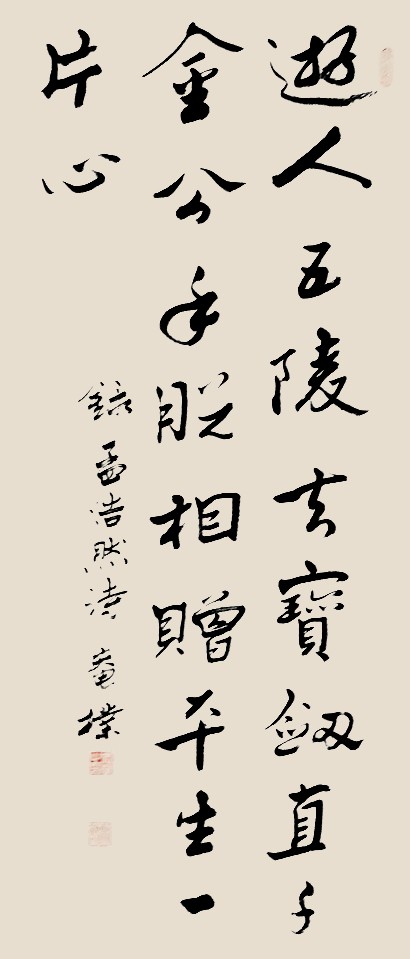 遊人五陵去寶劒直千
金分手脫相贈平生一
片心
錄孟浩然詩